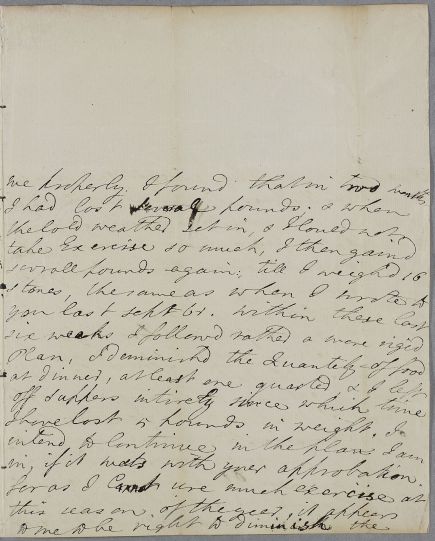 me properly. I found that in two months
I had lost several pounds; & when
the cold weather set in, & I coued not
take Exercise so much, I then gain'd
severall pounds again; till I weigh'd 16
stones, the same as when I wrote to
you last sept br. within these last
six weeks I follow'd rather a more rigid
Plan, I diminish'd the Quantity of food
at dinner, at least one quarter, & I left
off Suppers intirely since which time
I have lost 5 pounds in weight. I
intend to Continue in the plan I am
in, if it meets with your approbation.
for as I Cannot use much exercise at
this season of the year, it appears
to me to be right to diminish the